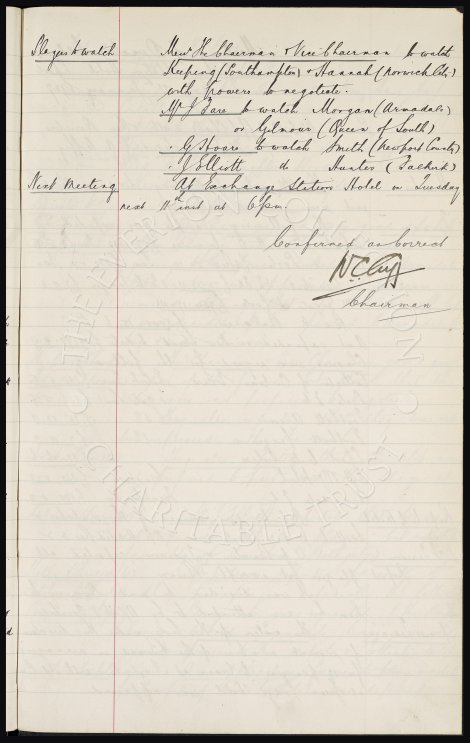 Players to watch Mess. The Chairman & Vice Chairman to watch
Keeping (Southampton) & Hannah (Norwich City)
with powers to negotiate.
Mr J Fare to watch Morgan (Armadale)
or Gilmour (Queen of South)
" G Hoare to watch Smith (Newport County)
" J Elliott do Hunter (Falkirk)
Next Meeting At Exchange Station Hotel on Tuesday
next 11th inst at 6pm.
Confirmed as Correct
W.C. Cuff
Chairman
THE EVERTON COLLECTION
CHARITABLE TRUST